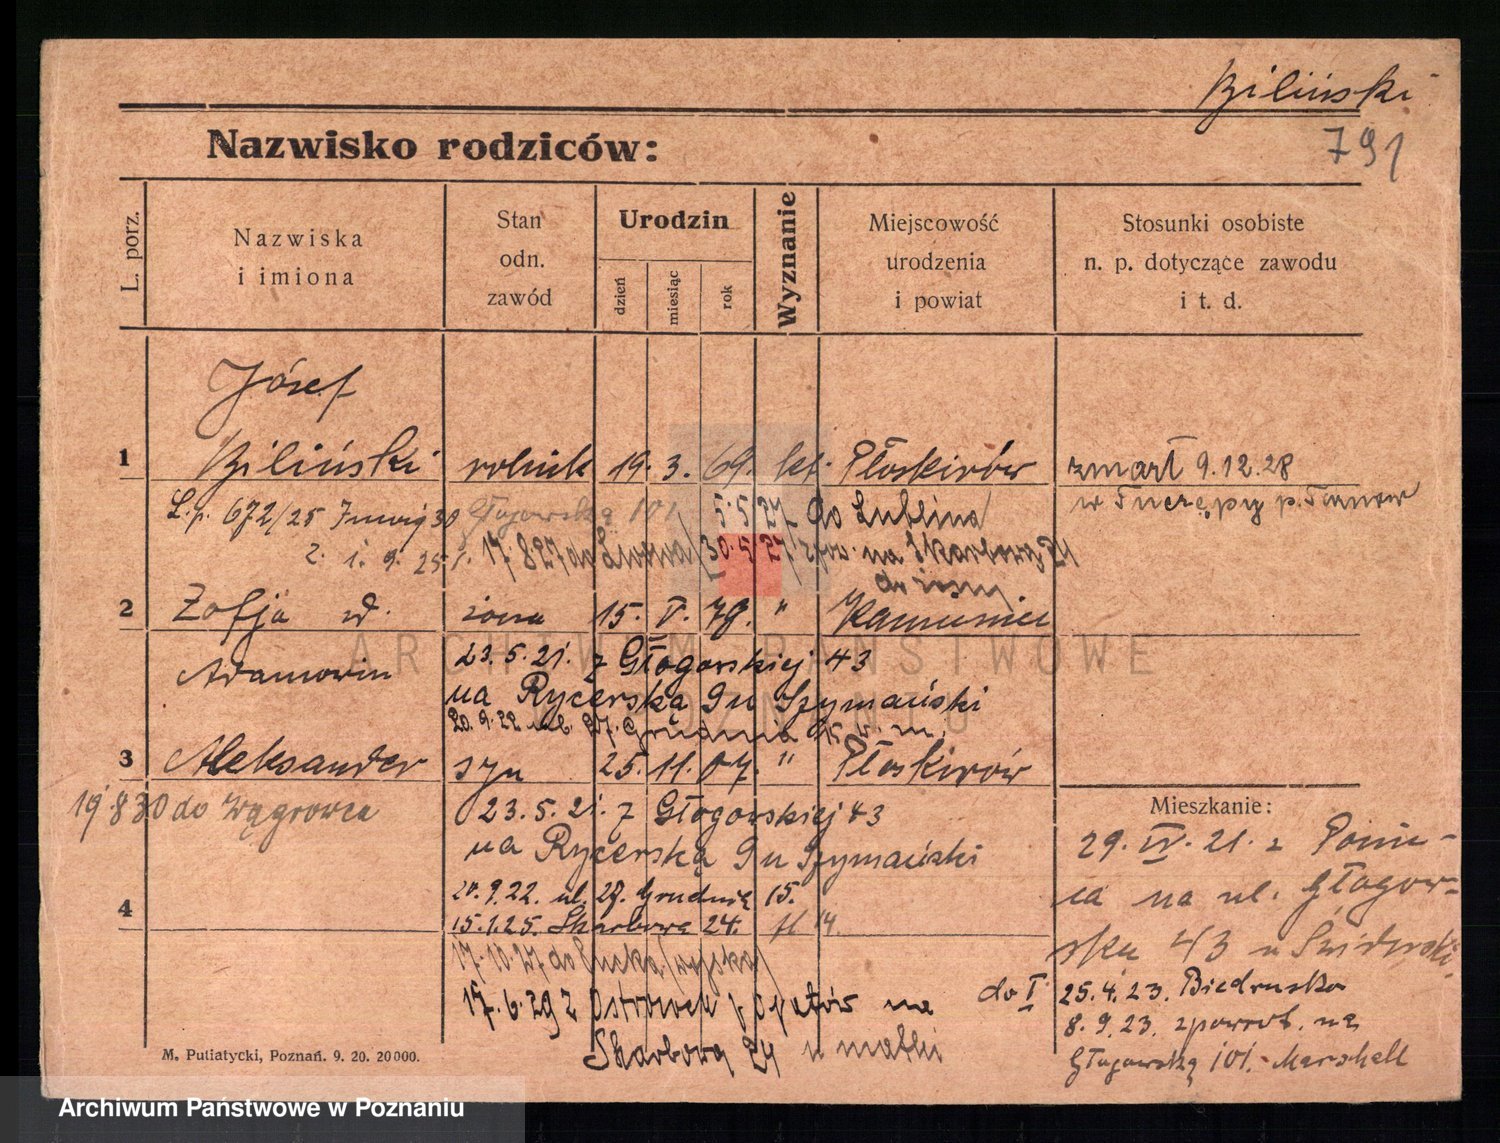 Biliński
791
Nazwisko rodziców:
L. porz.
Nazwiska
i imiona
Stan
odn.
zawód
Urodzin
dzień
miesiąc
rok
Wyznanie
Miejscowość
urodzenia
i powiat
Stosunki osobiste
n. p. dotyczące zawodu
i t. d.
Józef
1 Biliński rolnik 19. 3. 69. kat. Płoskirów zmarł 9.12.28
L.p. 672/25 Głogowską 101 5.5.27 do Lublina
w p. Tarnow
2. 1. 9. 25. 17.8.27 do 30.5.27 na Skarbową 24
2 Zofja żona 15. V. 78. "
Adamowicz 23.5.21. z Głogowskiej 43
na Rycerską 9 u Szymański
20.9.22 ul. 27. Grudnia 15
3 Aleksander syn 25. 11. 07. " Płoskirów
19 8 30 do Wągrowca
23.5.21. z Głogowskiej 43
na Rycerską 9 u Szymański
20.9.22. ul. 27. Grudnia 15.
4
15.1.25. Skarbowa 24. 14.
17.10.27 do Łucka (wojska)
17.6.29 z Ostrówek p. Opatów na
Skarbową 24 u matki
Mieszkanie:
29. IV. 21. z
na ul. Głogow-
ska 43 u
do I 25.4.23. Biedrusko
8.9.23. zpowrot. na
Głogowską 101. Marschall
M. Putiatycki, Poznań. 9. 20. 20000.
ARCHIWUM PAŃSTWOWE
W POZNANIU
Archiwum Państwowe w Poznaniu